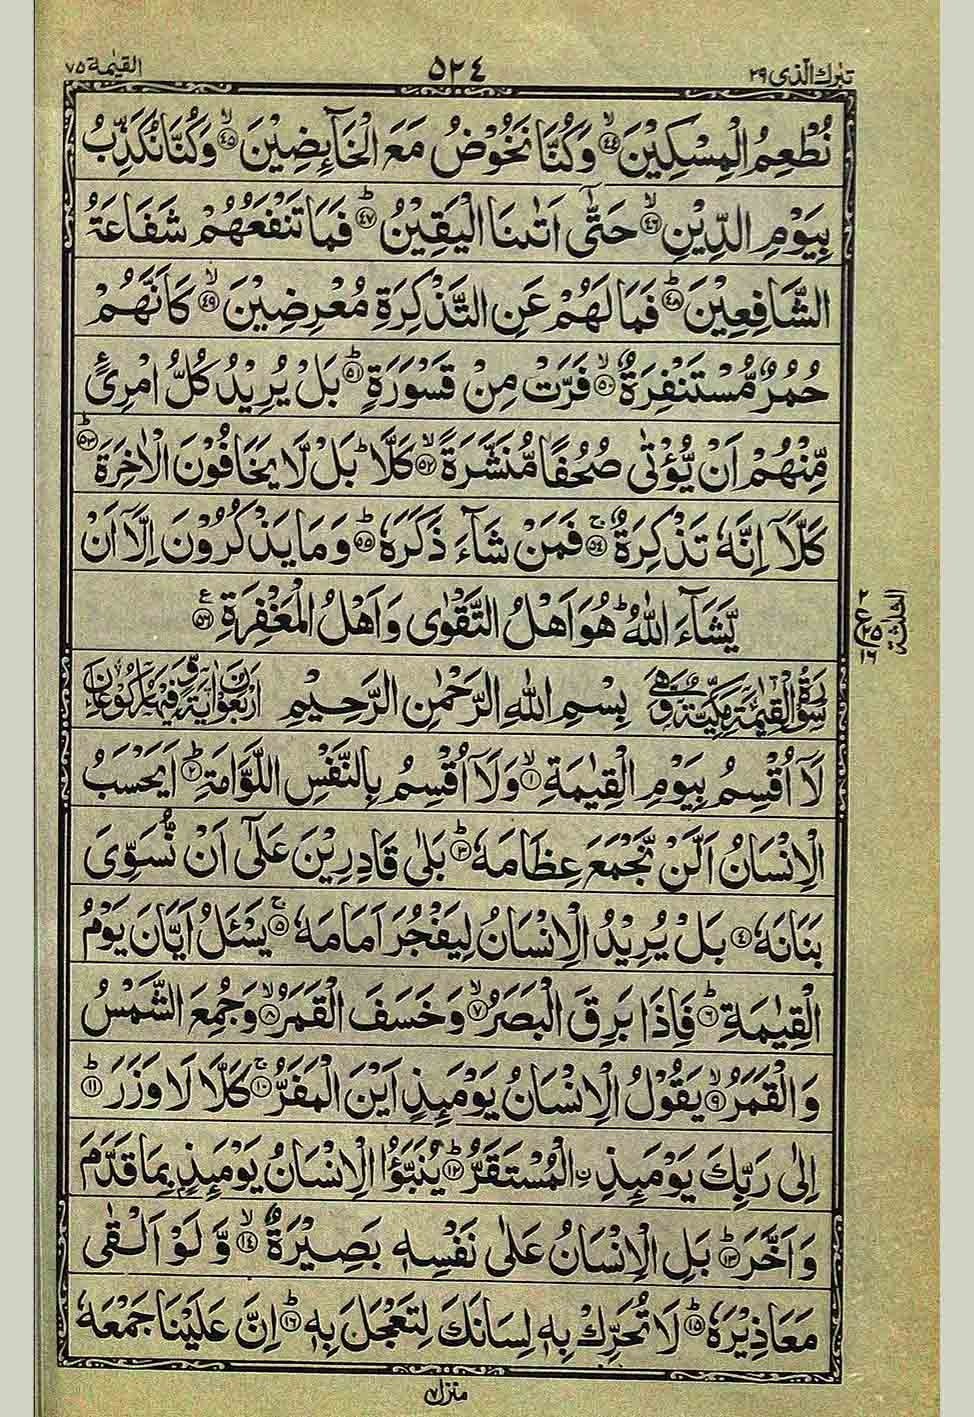 تبٰرك الّذى ٢٩ ٥٢٤ القيٰمة ٧٥
نُطْعِمُ الْمِسْكِيْنَ ۙ۝٤٤ وَكُنَّا نَخُوْضُ مَعَ الْخَآئِضِيْنَ ۙ۝٤٥ وَكُنَّا نُكَذِّبُ
بِيَوْمِ الدِّيْنِ ۙ۝٤٦ حَتّٰٓى اَتٰىنَا الْيَقِيْنُ ؕ۝٤٧ فَمَا تَنْفَعُهُمْ شَفَاعَةُ
الشَّافِعِيْنَ ؕ۝٤٨ فَمَا لَهُمْ عَنِ التَّذْكِرَةِ مُعْرِضِيْنَ ۙ۝٤٩ كَاَنَّهُمْ
حُمُرٌ مُّسْتَنْفِرَةٌ ۙ۝٥٠ فَرَّتْ مِنْ قَسْوَرَةٍ ؕ۝٥١ بَلْ يُرِيْدُ كُلُّ امْرِئٍ
مِّنْهُمْ اَنْ يُّؤْتٰى صُحُفًا مُّنَشَّرَةً ۙ۝٥٢ كَلَّا ؕ بَلْ لَّا يَخَافُوْنَ الْاٰخِرَةَ ؕ۝٥٣
كَلَّاۤ اِنَّهٗ تَذْكِرَةٌ ۚ۝٥٤ فَمَنْ شَآءَ ذَكَرَهٗ ؕ۝٥٥ وَمَا يَذْكُرُوْنَ اِلَّاۤ اَنْ
يَّشَآءَ اللّٰهُ ؕ هُوَ اَهْلُ التَّقْوٰى وَاَهْلُ الْمَغْفِرَةِ ۝٥٦ ع
الثلثة
٢ ع ٢٥ ١٦
سورة القيٰمة مكيّة وّهى بِسْمِ اللّٰهِ الرَّحْمٰنِ الرَّحِيْمِ اربعون اٰية وّفيها ركوعان
لَاۤ اُقْسِمُ بِيَوْمِ الْقِيٰمَةِ ۙ۝١ وَلَاۤ اُقْسِمُ بِالنَّفْسِ اللَّوَّامَةِ ؕ۝٢ اَيَحْسَبُ
الْاِنْسَانُ اَلَّنْ نَّجْمَعَ عِظَامَهٗ ؕ۝٣ بَلٰى قَادِرِيْنَ عَلٰٓى اَنْ نُّسَوِّىَ
بَنَانَهٗ ۝٤ بَلْ يُرِيْدُ الْاِنْسَانُ لِيَفْجُرَ اَمَامَهٗ ۚ۝٥ يَسْـَٔلُ اَيَّانَ يَوْمُ
الْقِيٰمَةِ ؕ۝٦ فَاِذَا بَرِقَ الْبَصَرُ ۙ۝٧ وَخَسَفَ الْقَمَرُ ۙ۝٨ وَجُمِعَ الشَّمْسُ
وَالْقَمَرُ ۙ۝٩ يَقُوْلُ الْاِنْسَانُ يَوْمَئِذٍ اَيْنَ الْمَفَرُّ ۚ۝١٠ كَلَّا لَا وَزَرَ ؕ۝١١
اِلٰى رَبِّكَ يَوْمَئِذِ ࣙالْمُسْتَقَرُّ ؕ۝١٢ يُنَبَّؤُا الْاِنْسَانُ يَوْمَئِذٍۭ بِمَا قَدَّمَ
وَاَخَّرَ ؕ۝١٣ بَلِ الْاِنْسَانُ عَلٰى نَفْسِهٖ بَصِيْرَةٌ ۙ۝١٤ وَّلَوْ اَلْقٰى
مَعَاذِيْرَهٗ ؕ۝١٥ لَا تُحَرِّكْ بِهٖ لِسَانَكَ لِتَعْجَلَ بِهٖ ؕ۝١٦ اِنَّ عَلَيْنَا جَمْعَهٗ
منزل ٧